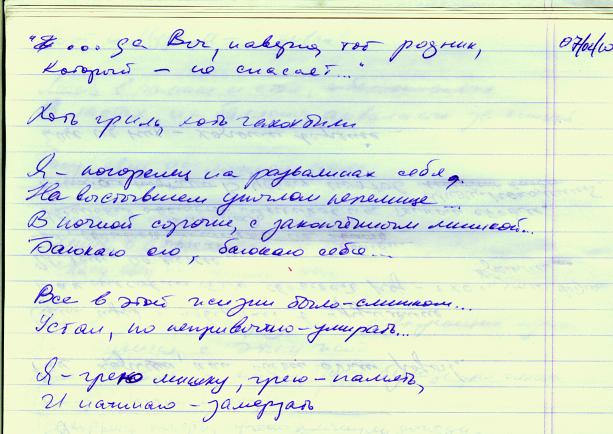 "Я ... да Вы, наверно, тот родник,
07/01/10
который – не спасает..."
Хоть гриль, хоть
Я – погорелец на развалинах себя,
На выстывшем унылом пепелище...
В ночной сорочке, с закопчённым мишкой...
Баюкаю его, баюкаю себя...
Все в этой жизни было – слишком...
Устал, но непривычно – умирать...
Я – грею мишку, грею – память,
И начинаю – замерзать